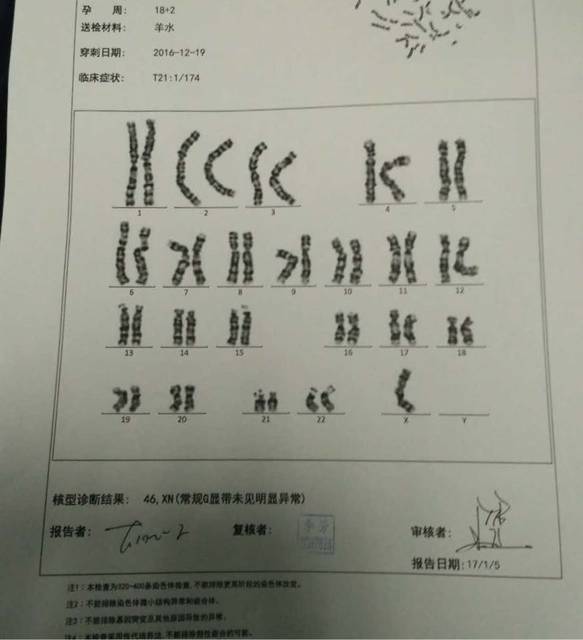 孕 周: 18+2
送检材料: 羊水
穿刺日期: 2016-12-19
临床症状: T21:1/174
1 2 3 4 5
6 7 8 9 10 11 12
13 14 15 16 17 18
19 20 21 22 X Y
核型诊断结果: 46,XN(常规G显带未见明显异常)
报告者: 复核者: 审核者:
报告日期:17/1/5
注1:本检查为320-400条染色体检查,不能排除更高阶段的染色体改变。
注2:不能排除染色体微小结构异常和嵌合体。
注3:不能排除基因突变及其他原因导致的异常。